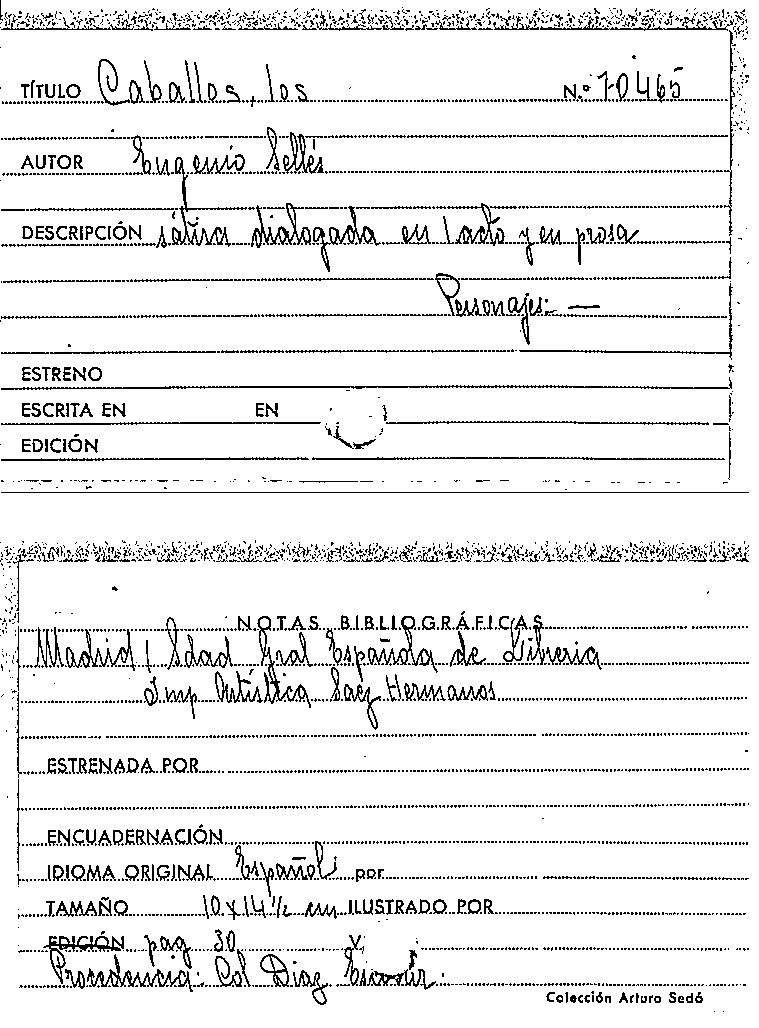 TÍTULO Caballos, los N.º 70465
AUTOR Eugenio Sellés
DESCRIPCIÓN sátira dialogada en 1 acto y en prosa
Personajes: —
ESTRENO
ESCRITA EN EN
EDICIÓN
NOTAS BIBLIOGRÁFICAS
Madrid / Sdad Gral Española de Libreria
Imp Artística Saéz Hermanos
ESTRENADA POR
ENCUADERNACIÓN
IDIOMA ORIGINAL Español por
TAMAÑO 10 x 14 ½ cm ILUSTRADO POR
EDICIÓN pag 30 V.
Procedencia: Col Diaz Escovar.
Colección Arturo Sedó